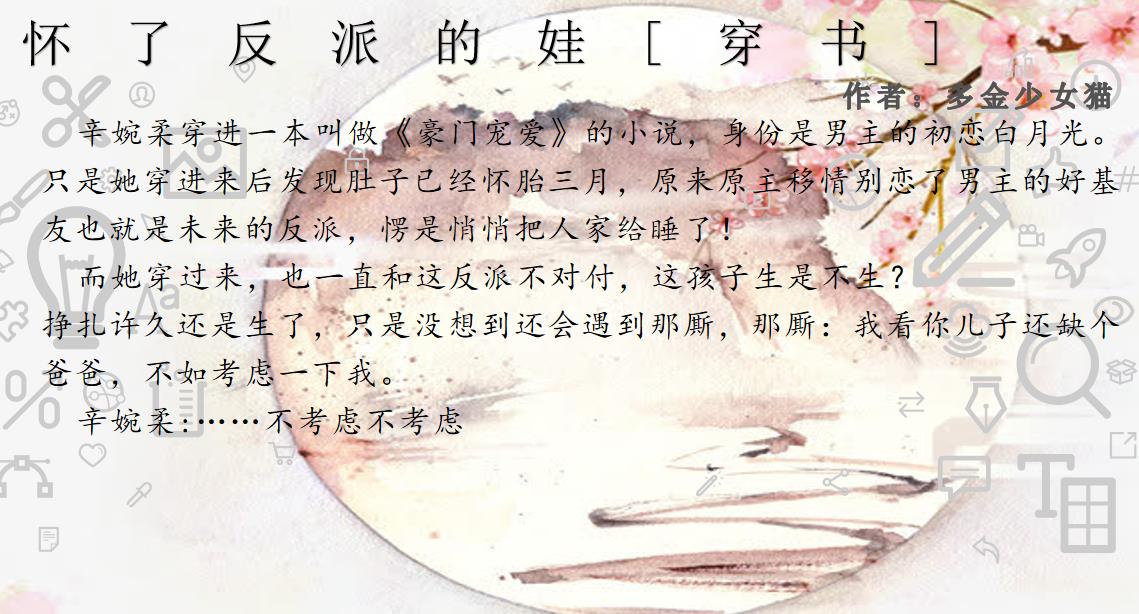 怀了反派的娃[穿书]
作者：多金少女猫
辛婉柔穿进一本叫做《豪门宠爱》的小说，身份是男主的初恋白月光。
只是她穿进来后发现肚子已经怀胎三月，原来原主移情别恋了男主的好基
友也就是未来的反派，愣是悄悄把人家给睡了！
而她穿过来，也一直和这反派不对付，这孩子生是不生？
挣扎许久还是生了，只是没想到还会遇到那厮，那厮：我看你儿子还缺个
爸爸，不如考虑一下我。
辛婉柔:……不考虑不考虑